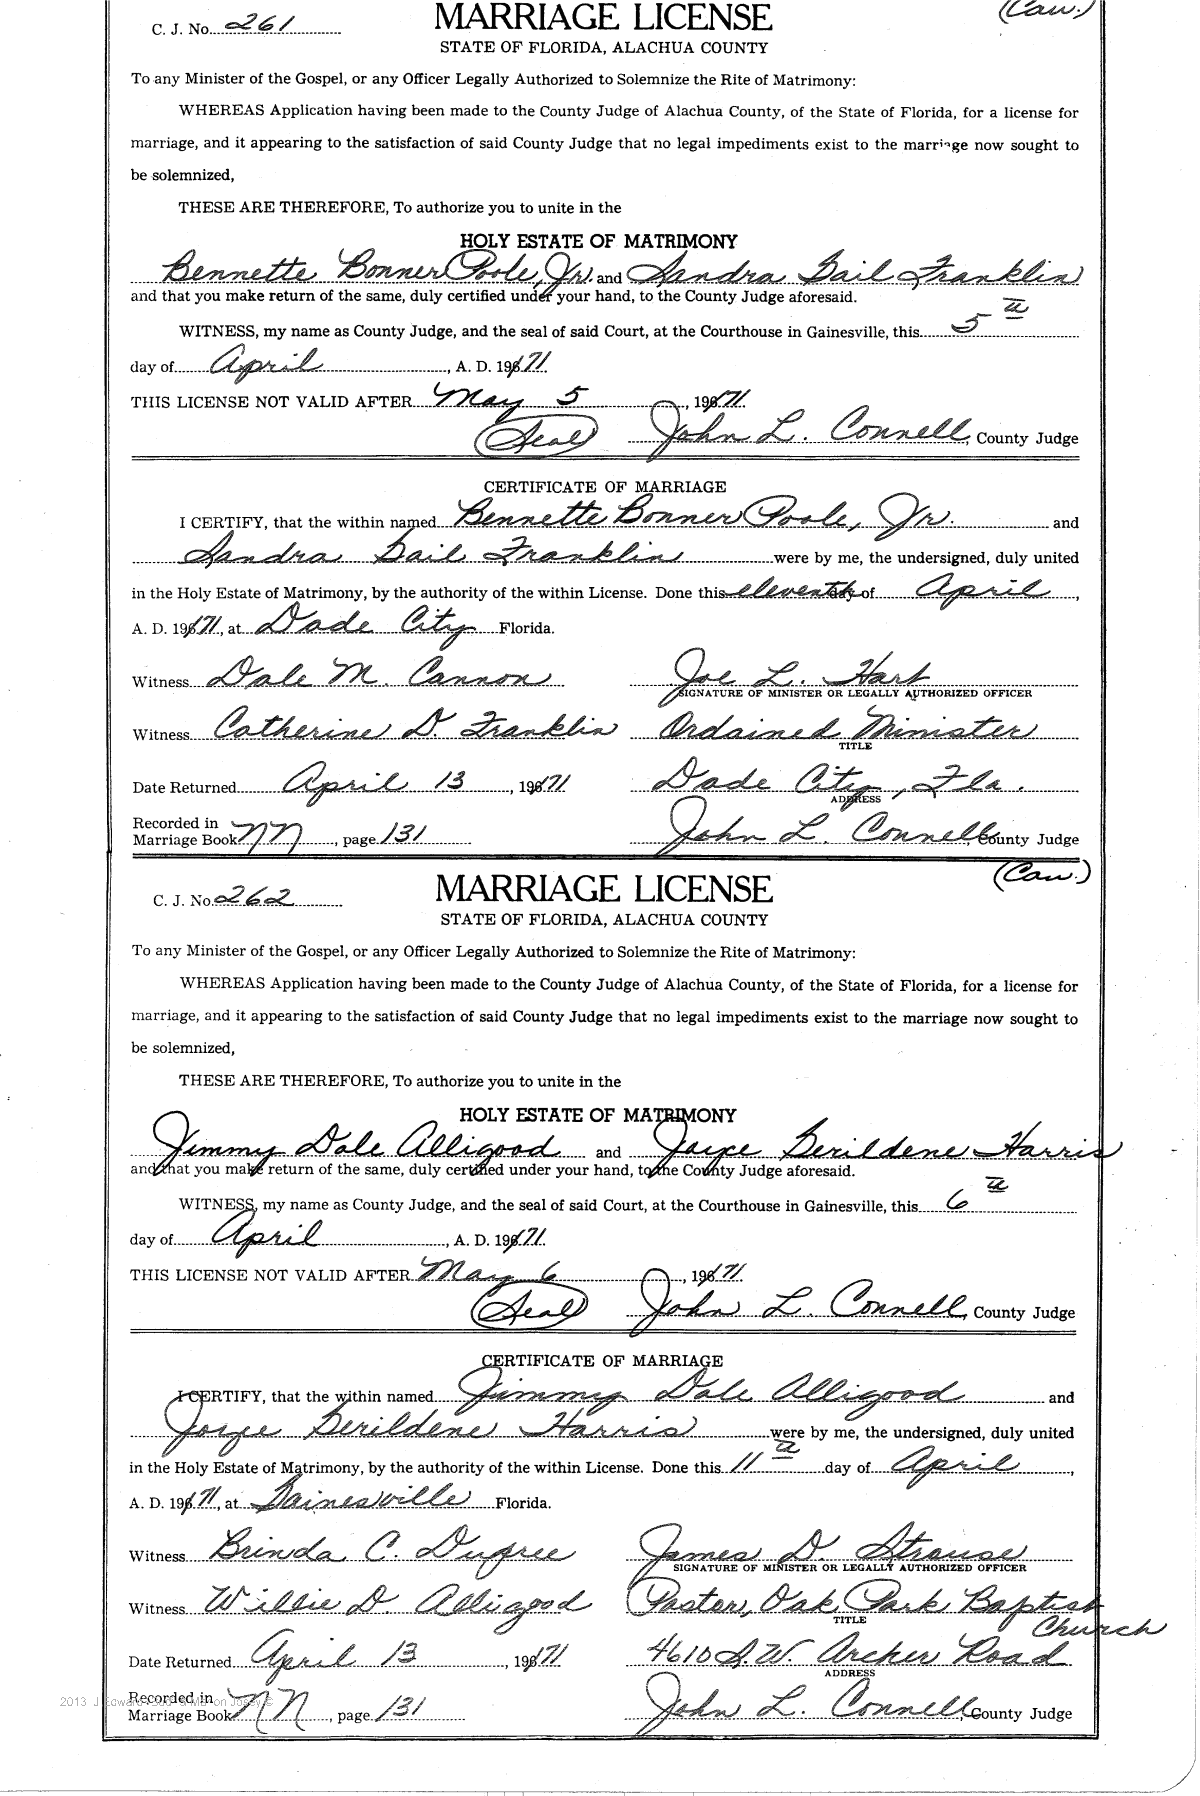 C. J. No. 261
MARRIAGE LICENSE
(Cau.)
STATE OF FLORIDA, ALACHUA COUNTY
To any Minister of the Gospel, or any Officer Legally Authorized to Solemnize the Rite of Matrimony:
WHEREAS Application having been made to the County Judge of Alachua County, of the State of Florida, for a license for
marriage, and it appearing to the satisfaction of said County Judge that no legal impediments exist to the marriage now sought to
be solemnized,
THESE ARE THEREFORE, To authorize you to unite in the
HOLY ESTATE OF MATRIMONY
Bennette Bonner Poole, Jr. and Sandra Gail Franklin
and that you make return of the same, duly certified under your hand, to the County Judge aforesaid.
WITNESS, my name as County Judge, and the seal of said Court, at the Courthouse in Gainesville, this 5th
day of April, A. D. 1971.
THIS LICENSE NOT VALID AFTER May 5, 1971.
(Seal) John L. Connell, County Judge
CERTIFICATE OF MARRIAGE
I CERTIFY, that the within named Bennette Bonner Poole, Jr. and
Sandra Gail Franklin were by me, the undersigned, duly united
in the Holy Estate of Matrimony, by the authority of the within License. Done this eleventh day of April,
A. D. 1971, at Dade City Florida.
Witness Dale M. Cannon Joe L. Hart
SIGNATURE OF MINISTER OR LEGALLY AUTHORIZED OFFICER
Witness Catherine D. Franklin Ordained Minister
TITLE
Date Returned April 13, 1971 Dade City, Fla.
ADDRESS
Recorded in
Marriage Book NN, page 131 John L. Connell, County Judge
(Cau.)
C. J. No. 262
MARRIAGE LICENSE
STATE OF FLORIDA, ALACHUA COUNTY
To any Minister of the Gospel, or any Officer Legally Authorized to Solemnize the Rite of Matrimony:
WHEREAS Application having been made to the County Judge of Alachua County, of the State of Florida, for a license for
marriage, and it appearing to the satisfaction of said County Judge that no legal impediments exist to the marriage now sought to
be solemnized,
THESE ARE THEREFORE, To authorize you to unite in the
HOLY ESTATE OF MATRIMONY
Jimmy Dale Alligood and Joyce Gerildene Harris
and that you make return of the same, duly certified under your hand, to the County Judge aforesaid.
WITNESS, my name as County Judge, and the seal of said Court, at the Courthouse in Gainesville, this 6th
day of April, A. D. 1971.
THIS LICENSE NOT VALID AFTER May 6, 1971.
(Seal) John L. Connell, County Judge
CERTIFICATE OF MARRIAGE
I CERTIFY, that the within named Jimmy Dale Alligood and
Joyce Gerildene Harris were by me, the undersigned, duly united
in the Holy Estate of Matrimony, by the authority of the within License. Done this 11th day of April,
A. D. 1971, at Gainesville Florida.
Witness Brinda C. Dupree James D. Strouse
SIGNATURE OF MINISTER OR LEGALLY AUTHORIZED OFFICER
Witness Willie D. Alligood Pastor, Oak Park Baptist
Church
TITLE
Date Returned April 13, 1971 4610 S.W. Archer Road
ADDRESS
Recorded in
Marriage Book NN, page 131 John L. Connell, County Judge
2013 J Edward